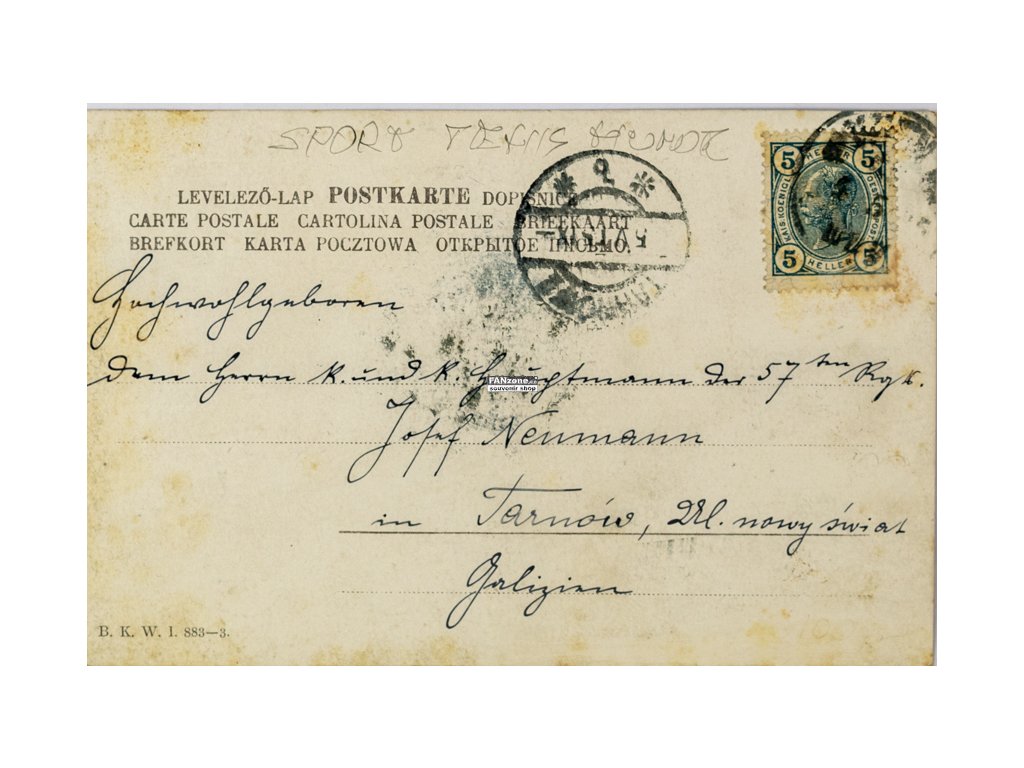 SPORT TENNIS
LEVELEZŐ-LAP POSTKARTE DOPISNICE
CARTE POSTALE CARTOLINA POSTALE BRIEFKAART
BREFKORT KARTA POCZTOWA ОТКРЫТОЕ ПИСЬМО.
5 HELLER 5
KAIS. KOENIGL. OESTERR. POST
5 HELLER 5
Hochwohlgeboren
dem Herrn k. und k. Hauptmann der 57ten Rgt.
FANzone
souvenir shop
Josef Neumann
in Tarnów, Ul. nowy świat
Galizien
B. K. W. I. 883—3.